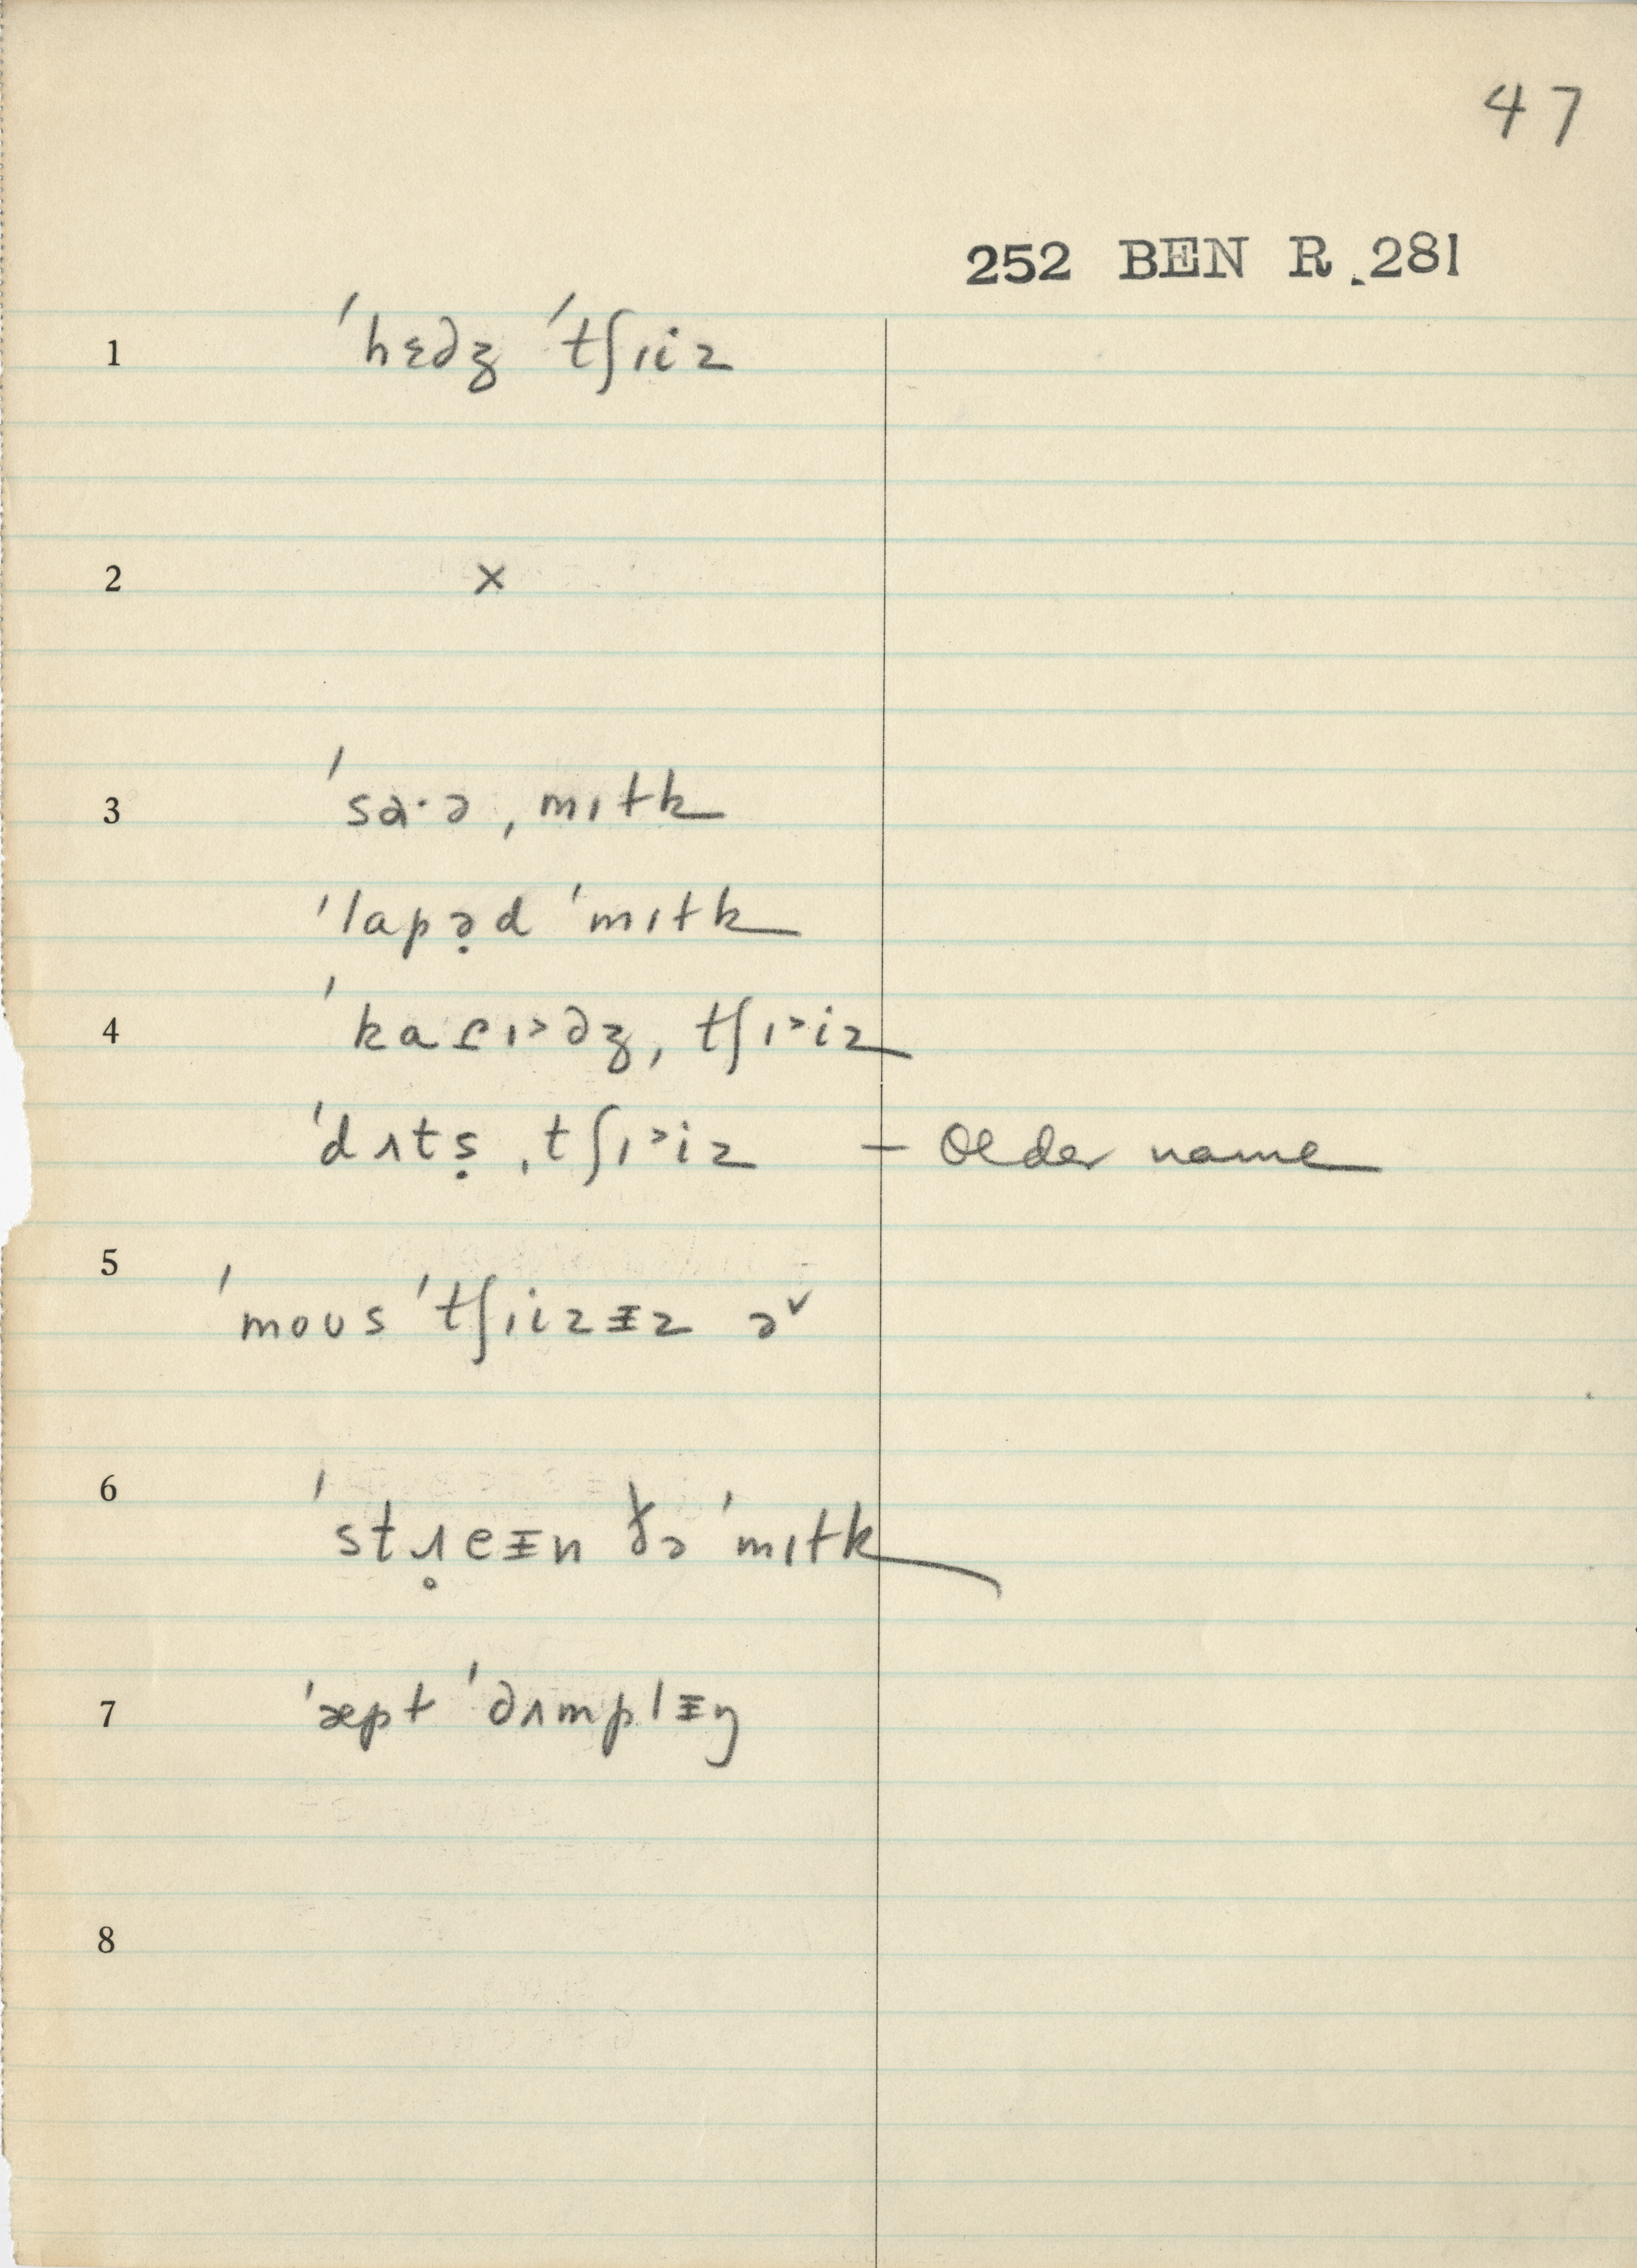 47
252 BEN R. 281
1 ˈhɛdʒ ˈtʃɪiz
2 ×
3 ˈsɑ·ə ˌmɪɫk
ˈlapə̣d ˈmɪɫk
4 ˈkaɾɪ˃dʒ ˌtʃɪ˃iz
ˈdʌtṣ ˌtʃɪ˃iz – Older name
5 ˈmoʊs ˈtʃɪizᵻz ə˅
6 ˈstɹ̥eᵻn ðə ˈmɪɫk
7 ˈæpɫ ˈdʌmplᵻŋ
8